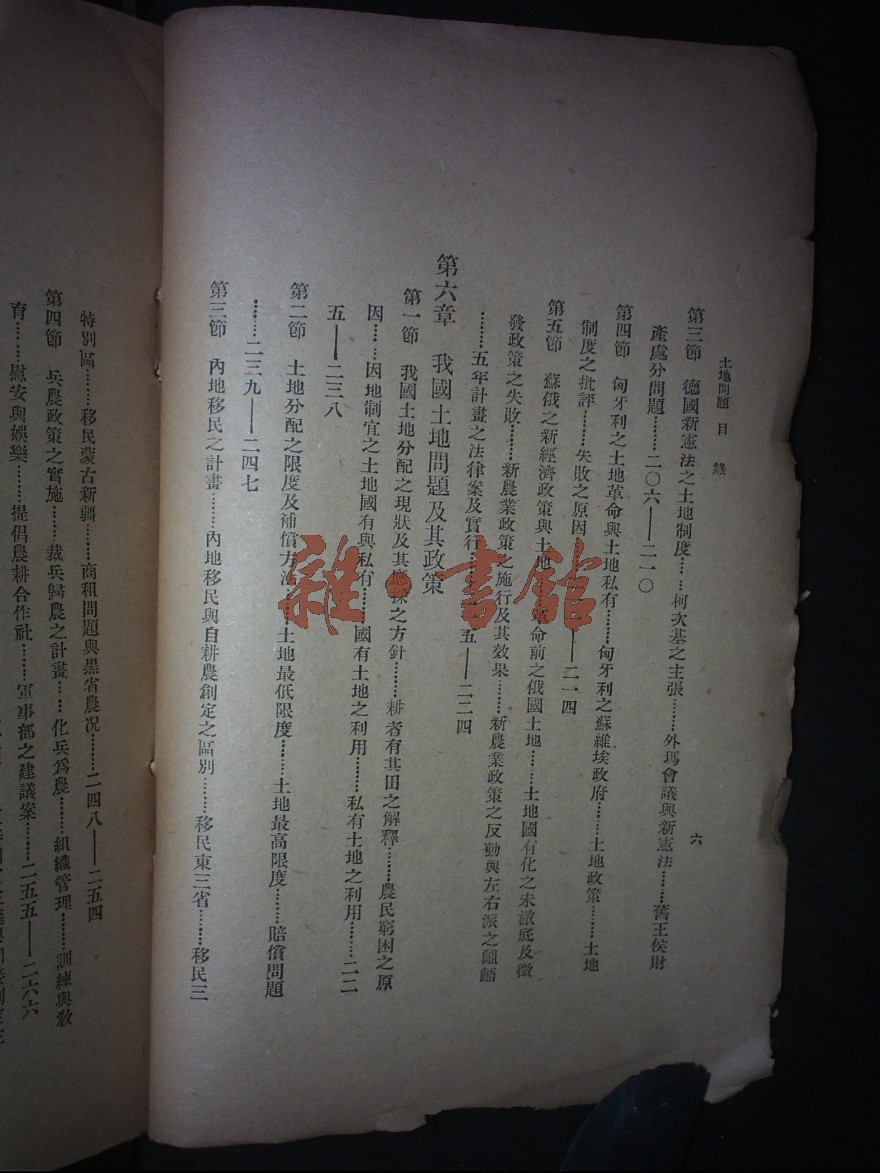 土地問題 目錄
六
第三節 德國新憲法之土地制度……柯次基之主張………外瑪會議與新憲法………舊王侯財
產處分問題………二〇六——二一〇
第四節 匈牙利之土地革命與土地私有………匈牙利之蘇維埃政府………土地政策………土地
制度之批評………失敗之原因 二一四
第五節 蘇俄之新經濟政策與土地 革命前之俄國土地………土地國有化之未澈底及徵
發政策之失敗………新農業政策之施行及其效果………新農業政策之反動與左右派之齟齬
………五年計畫之法律案及實行 五——二二四
第六章 我國土地問題及其政策
第一節 我國土地分配之現狀及其應採之方針………耕者有其田之解釋………農民窮困之原
因……因地制宜之土地國有與私有………國有土地之利用………私有土地之利用………二二
五——二三八
第二節 土地分配之限度及補償方法 土地最低限度………土地最高限度………賠償問題
………二三九——二四七
第三節 內地移民之計畫………內地移民與自耕農創定之區別………移民東三省………移民三
特別區………移民蒙古新疆………商租問題與黑省農况………二四八——二五四
第四節 兵農政策之實施………裁兵歸農之計畫……化兵爲農………組織管理………訓練與敎
育……慰安與娛樂………提倡農耕合作社………軍事部之建議案………二五五——二六六
雜·書館